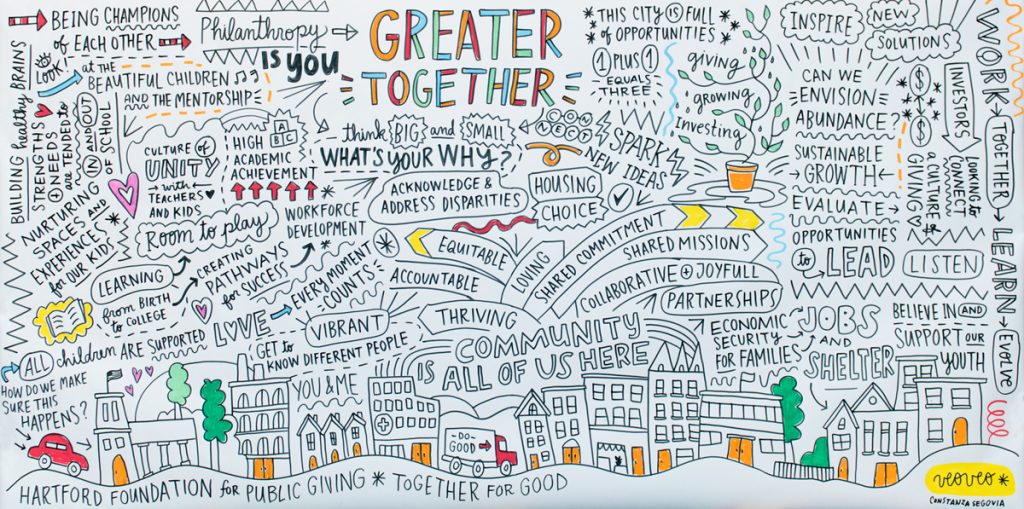 BEING CHAMPIONS
of EACH OTHER
Philanthropy
IS YOU
GREATER
TOGETHER
BUILDING healthy BRAINS
LOOK!
at the
BEAUTIFUL CHILDREN
AND THE MENTORSHIP
STRENGTHS
+ NEEDS
are TENDED to
IN AND OUT
OF SCHOOL
CULTURE OF
UNITY
with
TEACHERS
AND KIDS
HIGH
ABC
ACADEMIC
ACHIEVEMENT
think BIG and SMALL
WHAT'S YOUR WHY?
CONNECT
SPARK
NEW IDEAS
*THIS CITY IS FULL
of OPPORTUNITIES
1 PLUS 1
EQUALS
THREE
giving
growing
Investing
INSPIRE
NEW
SOLUTIONS
CAN WE
ENVISION
ABUNDANCE?
SUSTAINABLE
GROWTH
EVALUATE
OPPORTUNITIES
to LEAD
LISTEN
$
$
a CULTURE of
GIVING
INVESTORS
LOOKING to
CONNECT
WORK
TOGETHER
LEARN
Evolve
NURTURING
SPACES AND
EXPERIENCES
for OUR KIDS
Room to play
WORKFORCE
DEVELOPMENT
ACKNOWLEDGE &
ADDRESS DISPARITIES
HOUSING
CHOICE
LEARNING
from BIRTH
to COLLEGE
CREATING
PATHWAYS
for SUCCESS
EVERY MOMENT
COUNTS
EQUITABLE
ACCOUNTABLE
THRIVING
LOVING
SHARED COMMITMENT
SHARED MISSIONS
COLLABORATIVE + JOYFULL
PARTNERSHIPS
ALL children ARE SUPPORTED
LOVE
VIBRANT
GET to
KNOW DIFFERENT PEOPLE
YOU & ME
COMMUNITY
IS ALL OF US HERE
ECONOMIC
SECURITY
FOR FAMILIES
JOBS
AND
SHELTER
BELIEVE IN AND
SUPPORT OUR
YOUTH
HOW DO WE MAKE
SURE THIS
HAPPENS?
-DO-
GOOD
HARTFORD FOUNDATION for PUBLIC GIVING * TOGETHER FOR GOOD
veoveo*
CONSTANZA SEGOVIA